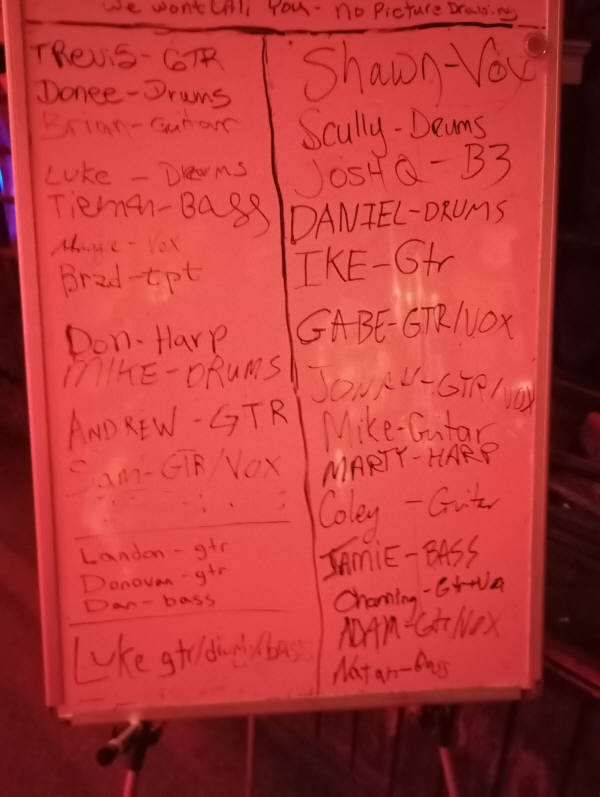 We wont CAll You - no Picture Drawing
TRevis - GTR
Donee - Drums
Brian - Guitar
Luke - Drums
Tieman - BASS
- Vox
Brad - tpt
Don - Harp
MIKE - DRUMS
ANDREW - GTR
Sam - GTR/VOX
Landon - gtr
Donovan - gtr
Dan - bass
Luke gtr/drums/bass
Shawn - Vox
Scully - Drums
JOSH Q - B3
DANIEL - DRUMS
IKE - Gtr
GABE - GTR/VOX
JONAH - GTR/VOX
Mike - Guitar
MARTY - HARP
Coley - Guitar
JAMIE - BASS
Channing - Gtr+Vox
ADAM - Gtr/VOX
Natan - Bass